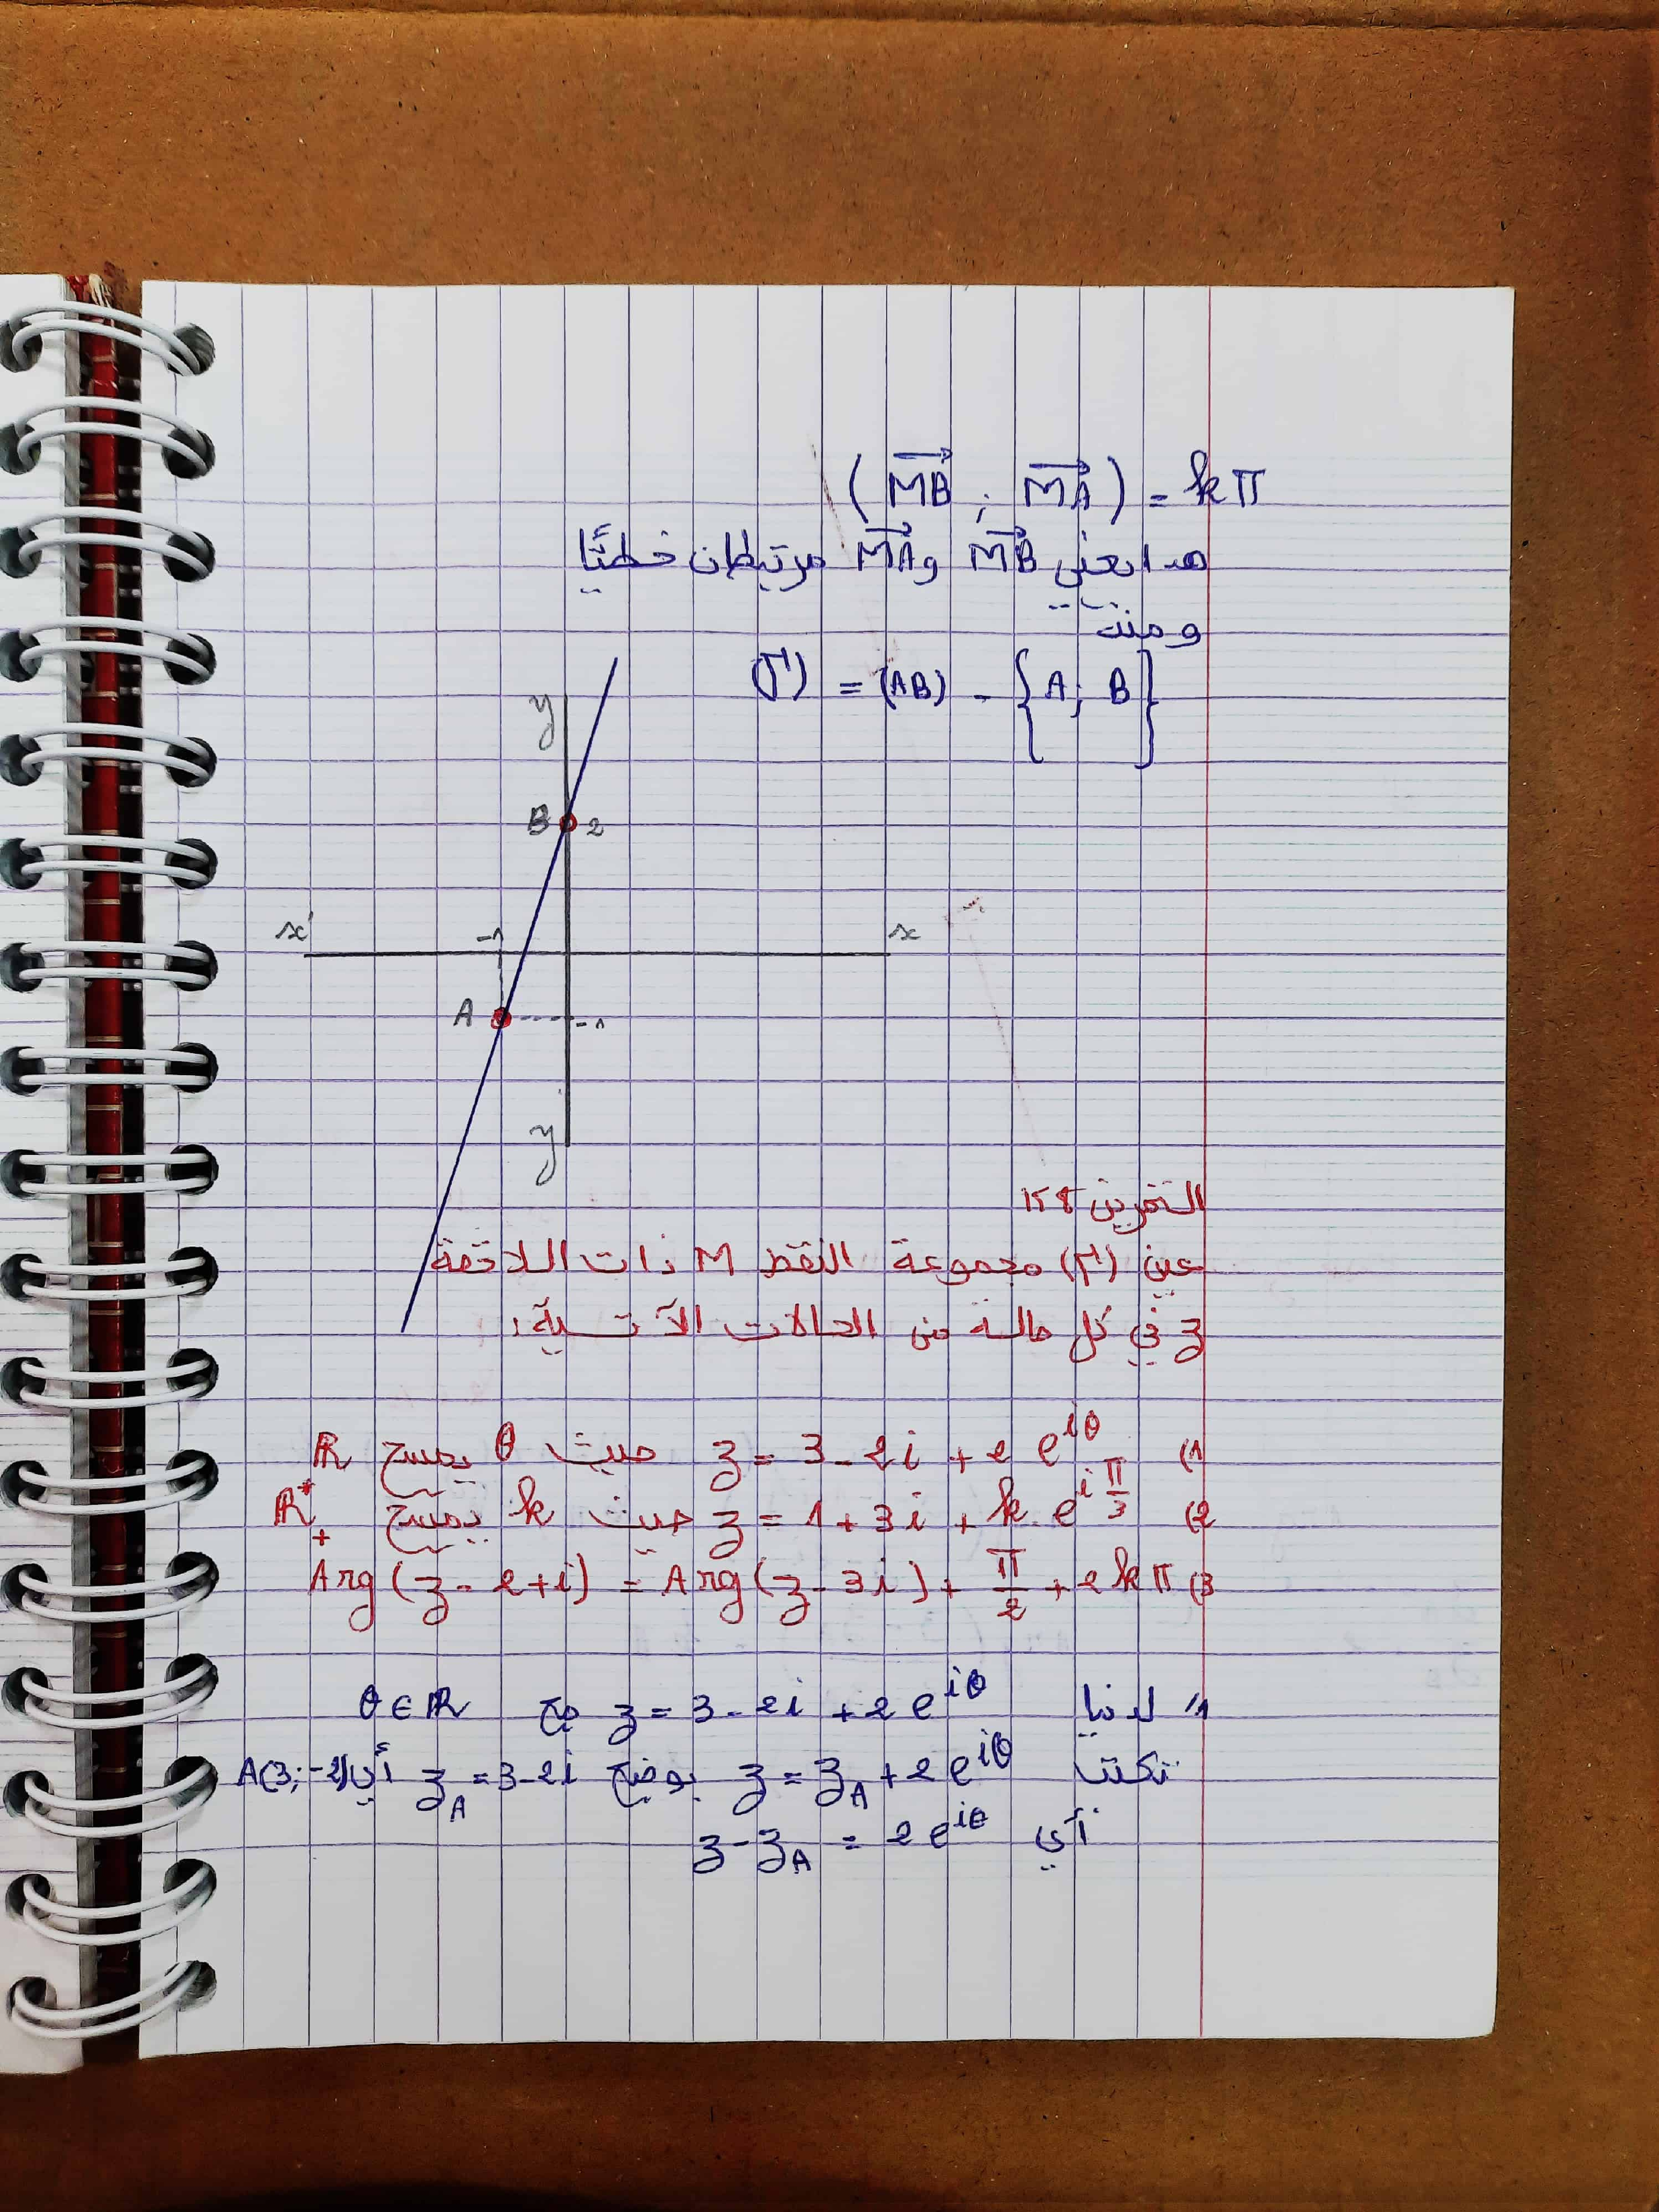 (MB ; MA) = kπ
هذا يعني MB و MA مرتبطان خطيًا
ومنه
(Γ) = (AB) - {A; B}
y
B 2
x' -1 x
A -1
y'
التمرين 158
عين (Γ) مجموعة النقط M ذات اللاحقة
z في كل حالة من الحالات الآتية:
1) z = 3 - 2i + 2 e^{iθ} حيث θ يمسح ℝ
2) z = 1 + 3i + k e^{i π/3} حيث k يمسح ℝ*+
3) Arg(z - 2 + i) = Arg(z - 3i) + π/2 + 2kπ
1/ لدنيا z = 3 - 2i + 2 e^{iθ} مع θ ∈ ℝ
تكتب z = z_A + 2 e^{iθ} بوضع z_A = 3 - 2i أي A(3; -2)
أي z - z_A = 2 e^{iθ}